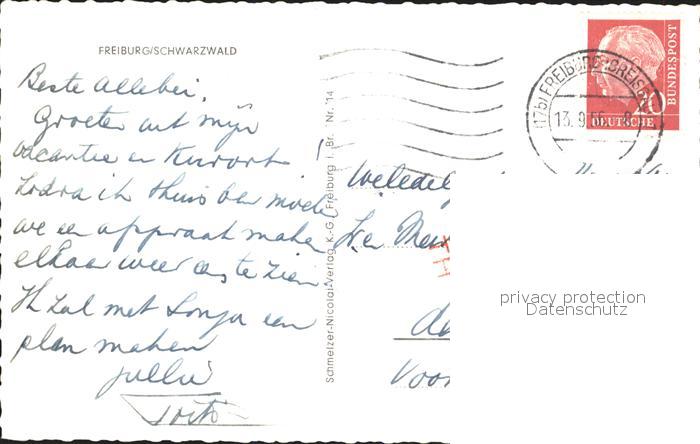 FREIBURG/SCHWARZWALD
Beste Allebei,
Groeten uit mijn
vacantie en Kurort!
Zodra ik thuis ben moeten
we een afspraak maken
elkaar weer eens te zien
Ik zal met Sonja een
plan maken
jullie
Schmelzer-Nicolai-Verlag K.-G., Freiburg i. Br. Nr. 14
(17b) FREIBURG (BREISG
13. 9.
20
DEUTSCHE
BUNDESPOST
Weledel
Voor
privacy protection
Datenschutz